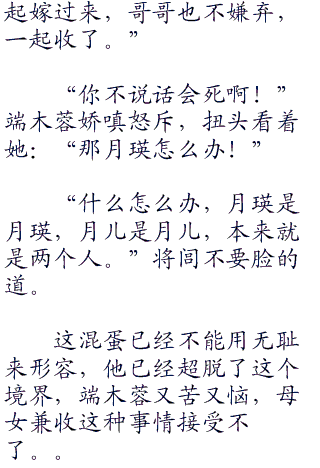 起嫁过来，哥哥也不嫌弃，
一起收了。”
“你不说话会死啊！”
端木蓉娇嗔怒斥，扭头看着
她：“那月瑛怎么办！”
“什么怎么办，月瑛是
月瑛，月儿是月儿，本来就
是两个人。”将闾不要脸的
道。
这混蛋已经不能用无耻
来形容，他已经超脱了这个
境界，端木蓉又苦又恼，母
女兼收这种事情接受不
了。。